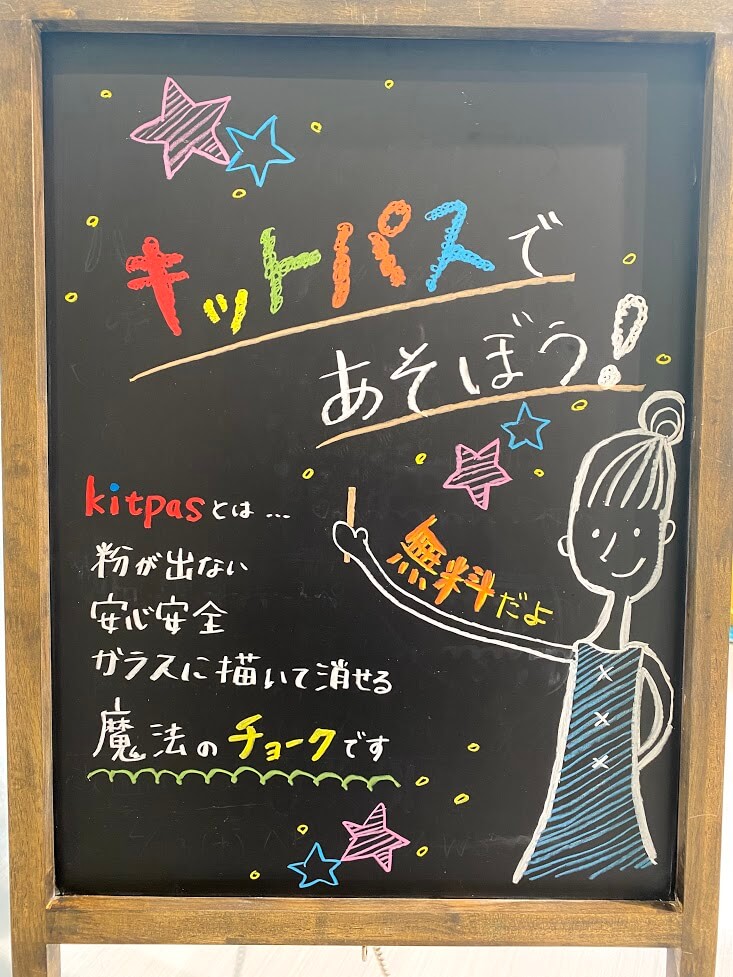 キットパスで
あそぼう!
kitpasとは…
粉が出ない
安心安全
ガラスに描いて消せる
魔法のチョークです
無料だよ